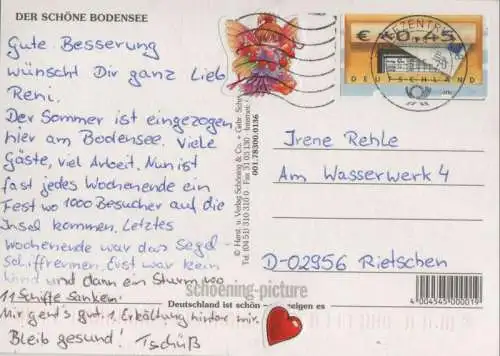 DER SCHÖNE BODENSEE
Gute Besserung
wünscht Dir ganz lieb
Reni.
Der Sommer ist eingezogen
hier am Bodensee. Viele
Gäste, viel Arbeit. Nun ist
fast jedes Wochenende ein
Fest wo 1000 Besucher auf die
Insel kommen. Letztes
Wochenende war das Segel-
Schiffrennen. Erst war kein
Wind und dann ein Sturm wo
11 Schiffe sanken.
Mir geht's gut. 1 Erkältung hinter mir.
Bleib gesund! Tschüß
© Horst u. Verlag Schöning & Co. + Gebr.
Tel. (04 51) 310 31 0 · Fax 31 03 130 · Internet:
001.78300.0136
€ 0,45
DEUTSCHLAND
Irene Rehle
Am Wasserwerk 4
D-02956 Rietschen
schoening-picture
Deutschland ist schön eigen es
4 004545 000019